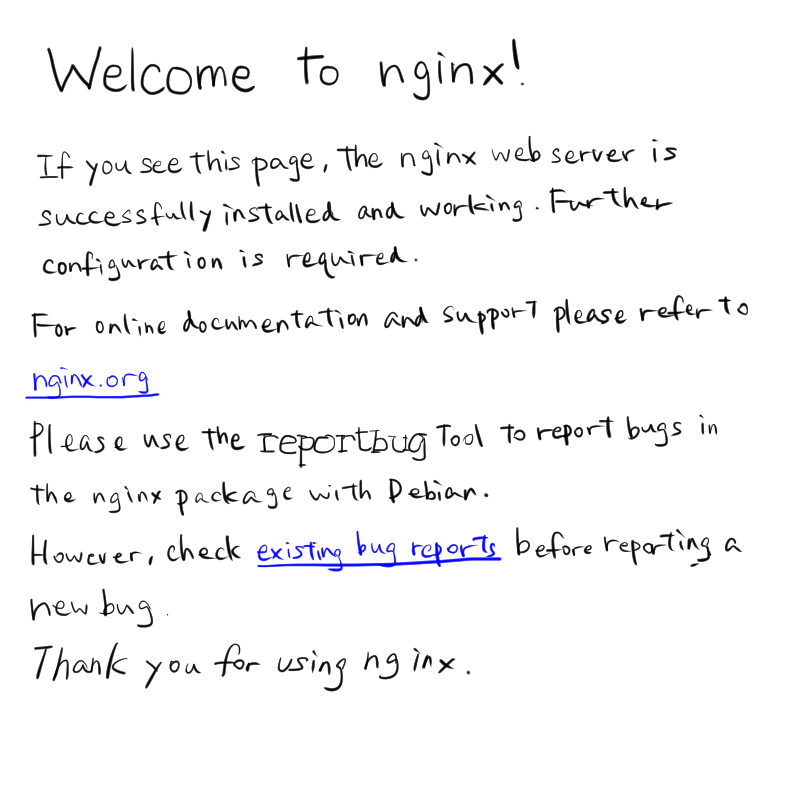 Welcome to nginx!
If you see this page, the nginx web server is
successfully installed and working. Further
configuration is required.
For online documentation and support please refer to
nginx.org
Please use the reportbug Tool to report bugs in
the nginx package with Debian.
However, check existing bug reports before reporting a
new bug.
Thank you for using nginx.